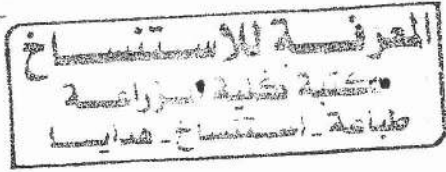 المعرفة للاستنساخ
مكتبة كلية الزراعة
طباعة - استنساخ - هدايا